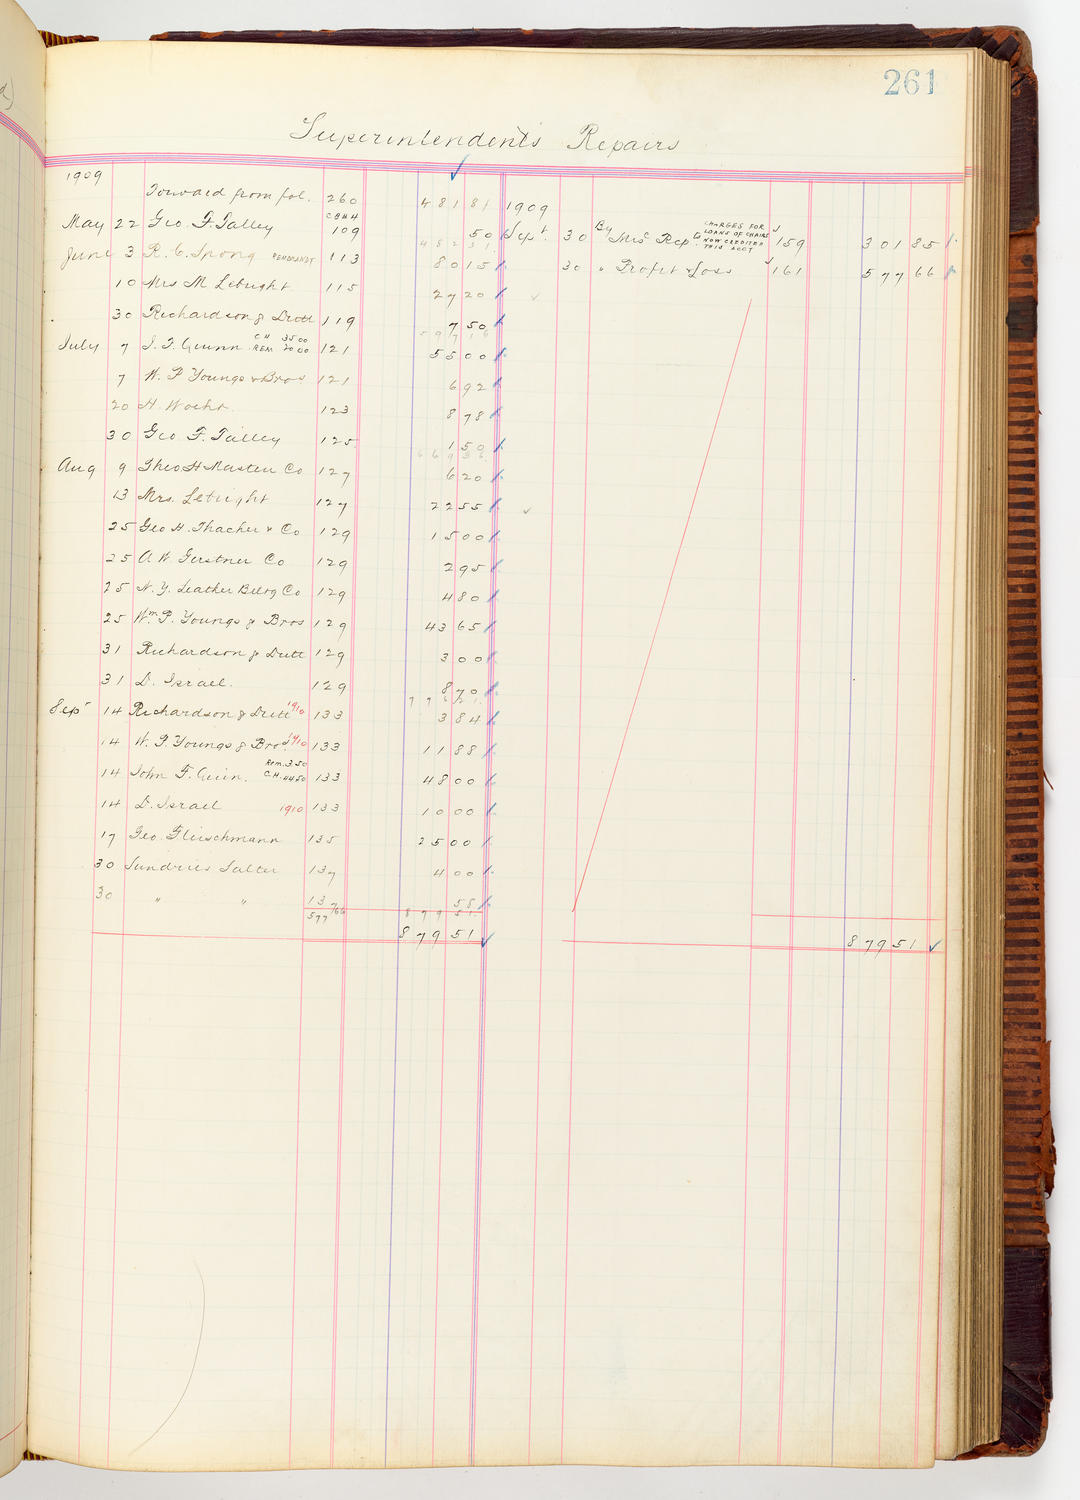 261
Superintendent's Repairs
1909
Forward from fol. 260 481 81
May 22 Geo. F. Talley CB#4 109 50
482 31
June 3 R. C. Spong REMBRANDT 113 80 15
10 Mrs M Lebright 115 27 20
30 Richardson & Dutt 119 7 50
597 16
July 7 J. F. Quinn C H 35 00 REM 20 00 121 55 00
7 W. P Youngs & Bros 121 6 92
20 H. Wocht 123 8 78
30 Geo F. Talley 125 1 50
669 36
Aug 9 Theo H Masten Co 127 6 20
13 Mrs. Lebright 127 22 55
25 Geo H. Thacher & Co 129 15 00
25 A W Gerstner Co 129 2 95
25 N. Y. Leather Beltg Co 129 4 80
25 Wm P. Youngs & Bros 129 43 65
31 Richardson & Dutt 129 3 00
31 D. Israel. 129 8 70
776 21
Sep 14 Richardson & Dutt 1910 133 3 84
14 W. P. Youngs & Bros 1910 133 11 88
14 John F. Quin. Rem. 3.50 C.H. 44 50 133 48 00
14 D. Israel 1910 133 10 00
17 Geo. Fleischmann 135 25 00
30 Sundries Salter 137 4 00
30 " " 137 58
577/66 879 51
879 51
1909
Sept. 30 By Mis. Rep. CHARGES FOR LOANS OF CHAIRS NOW CREDITED THIS ACCT 159 301 85
30 " Profit & Loss 161 577 66
879 51